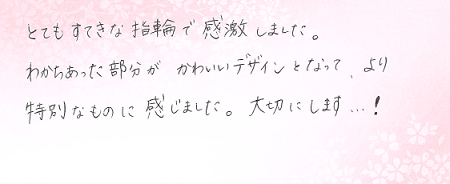 とてもすてきな指輪で感激しました。
わかちあった部分が かわいいデザインとなって、より
特別なものに感じました。大切にします…!